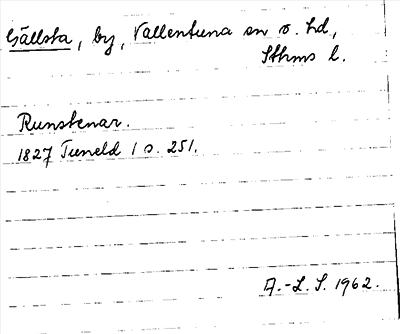 Gällsta, by, Vallentuna sn o. hd,
Sthms l.
Runstenar.
1827 Tuneld 1 s. 251.
A.-L. S. 1962.